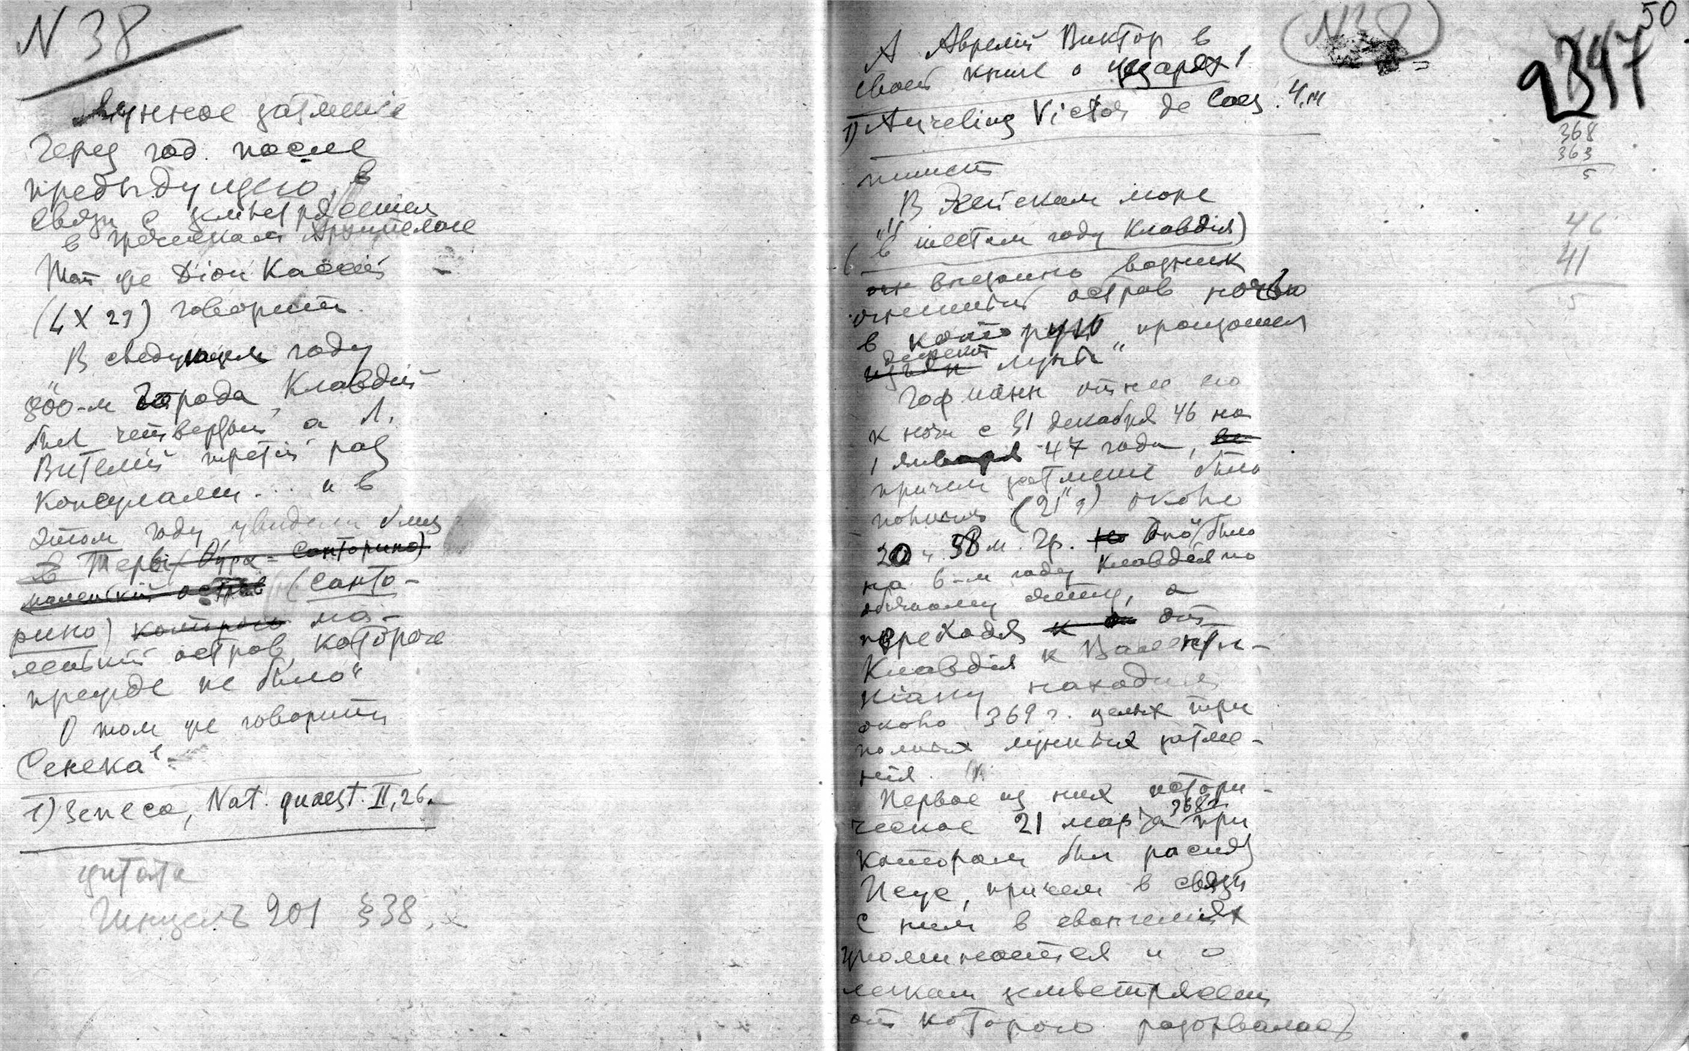 N 38
Лунное затменiе
Через год после
предыдущего, в
связи с землетрясенiем
в греческом Архипелаге
Тот же Дiон Кассiй
(LX 29) говорит
В следующем году
800-м города, Клавдiй
был четвертый, а Л.
Вителiй третiй раз
Консулами... и в
этом году увидели близ
в Теры (Фура = Санторино)
маленькiй остров (Санто-
рино) которого ма-
ленькiй остров, которого
прежде не было"
О том же говорит
Сенека 1
1) Seneca, Nat. quaest. II, 26.
цитата
Гинцель 201 § 38.
50
N 38
2347
А Аврелiй Виктор в
своей книге о цезарях 1
1) Aurelius Victor de Caes. 4,14
пишет
В Эгейском море
(в шестом году Клавдiя)
внезапно возник
огненный остров ночью
в которую произошел
дефект луны"
Гофманн отнес его
к ночи с 31 декабря 46 на
1 января 47 года,
причем затменiе было
полным (21"9) около
20 ч. 38 м. Гр. Это было
на 6-м году Клавдiя по
обычному счету, а
переходя от
Клавдiя к Валенти-
нiану находим
около 369 г. целых три
полных лунных затме-
нiя.
Первое из них истори-
ческое 21 марта 368 г. при
котором был распят
Исус, причем в связи
с ним в евангелиях
упоминается и о
легком землетрясенiи
от которого разорвалась
368
363
5
46
41
5